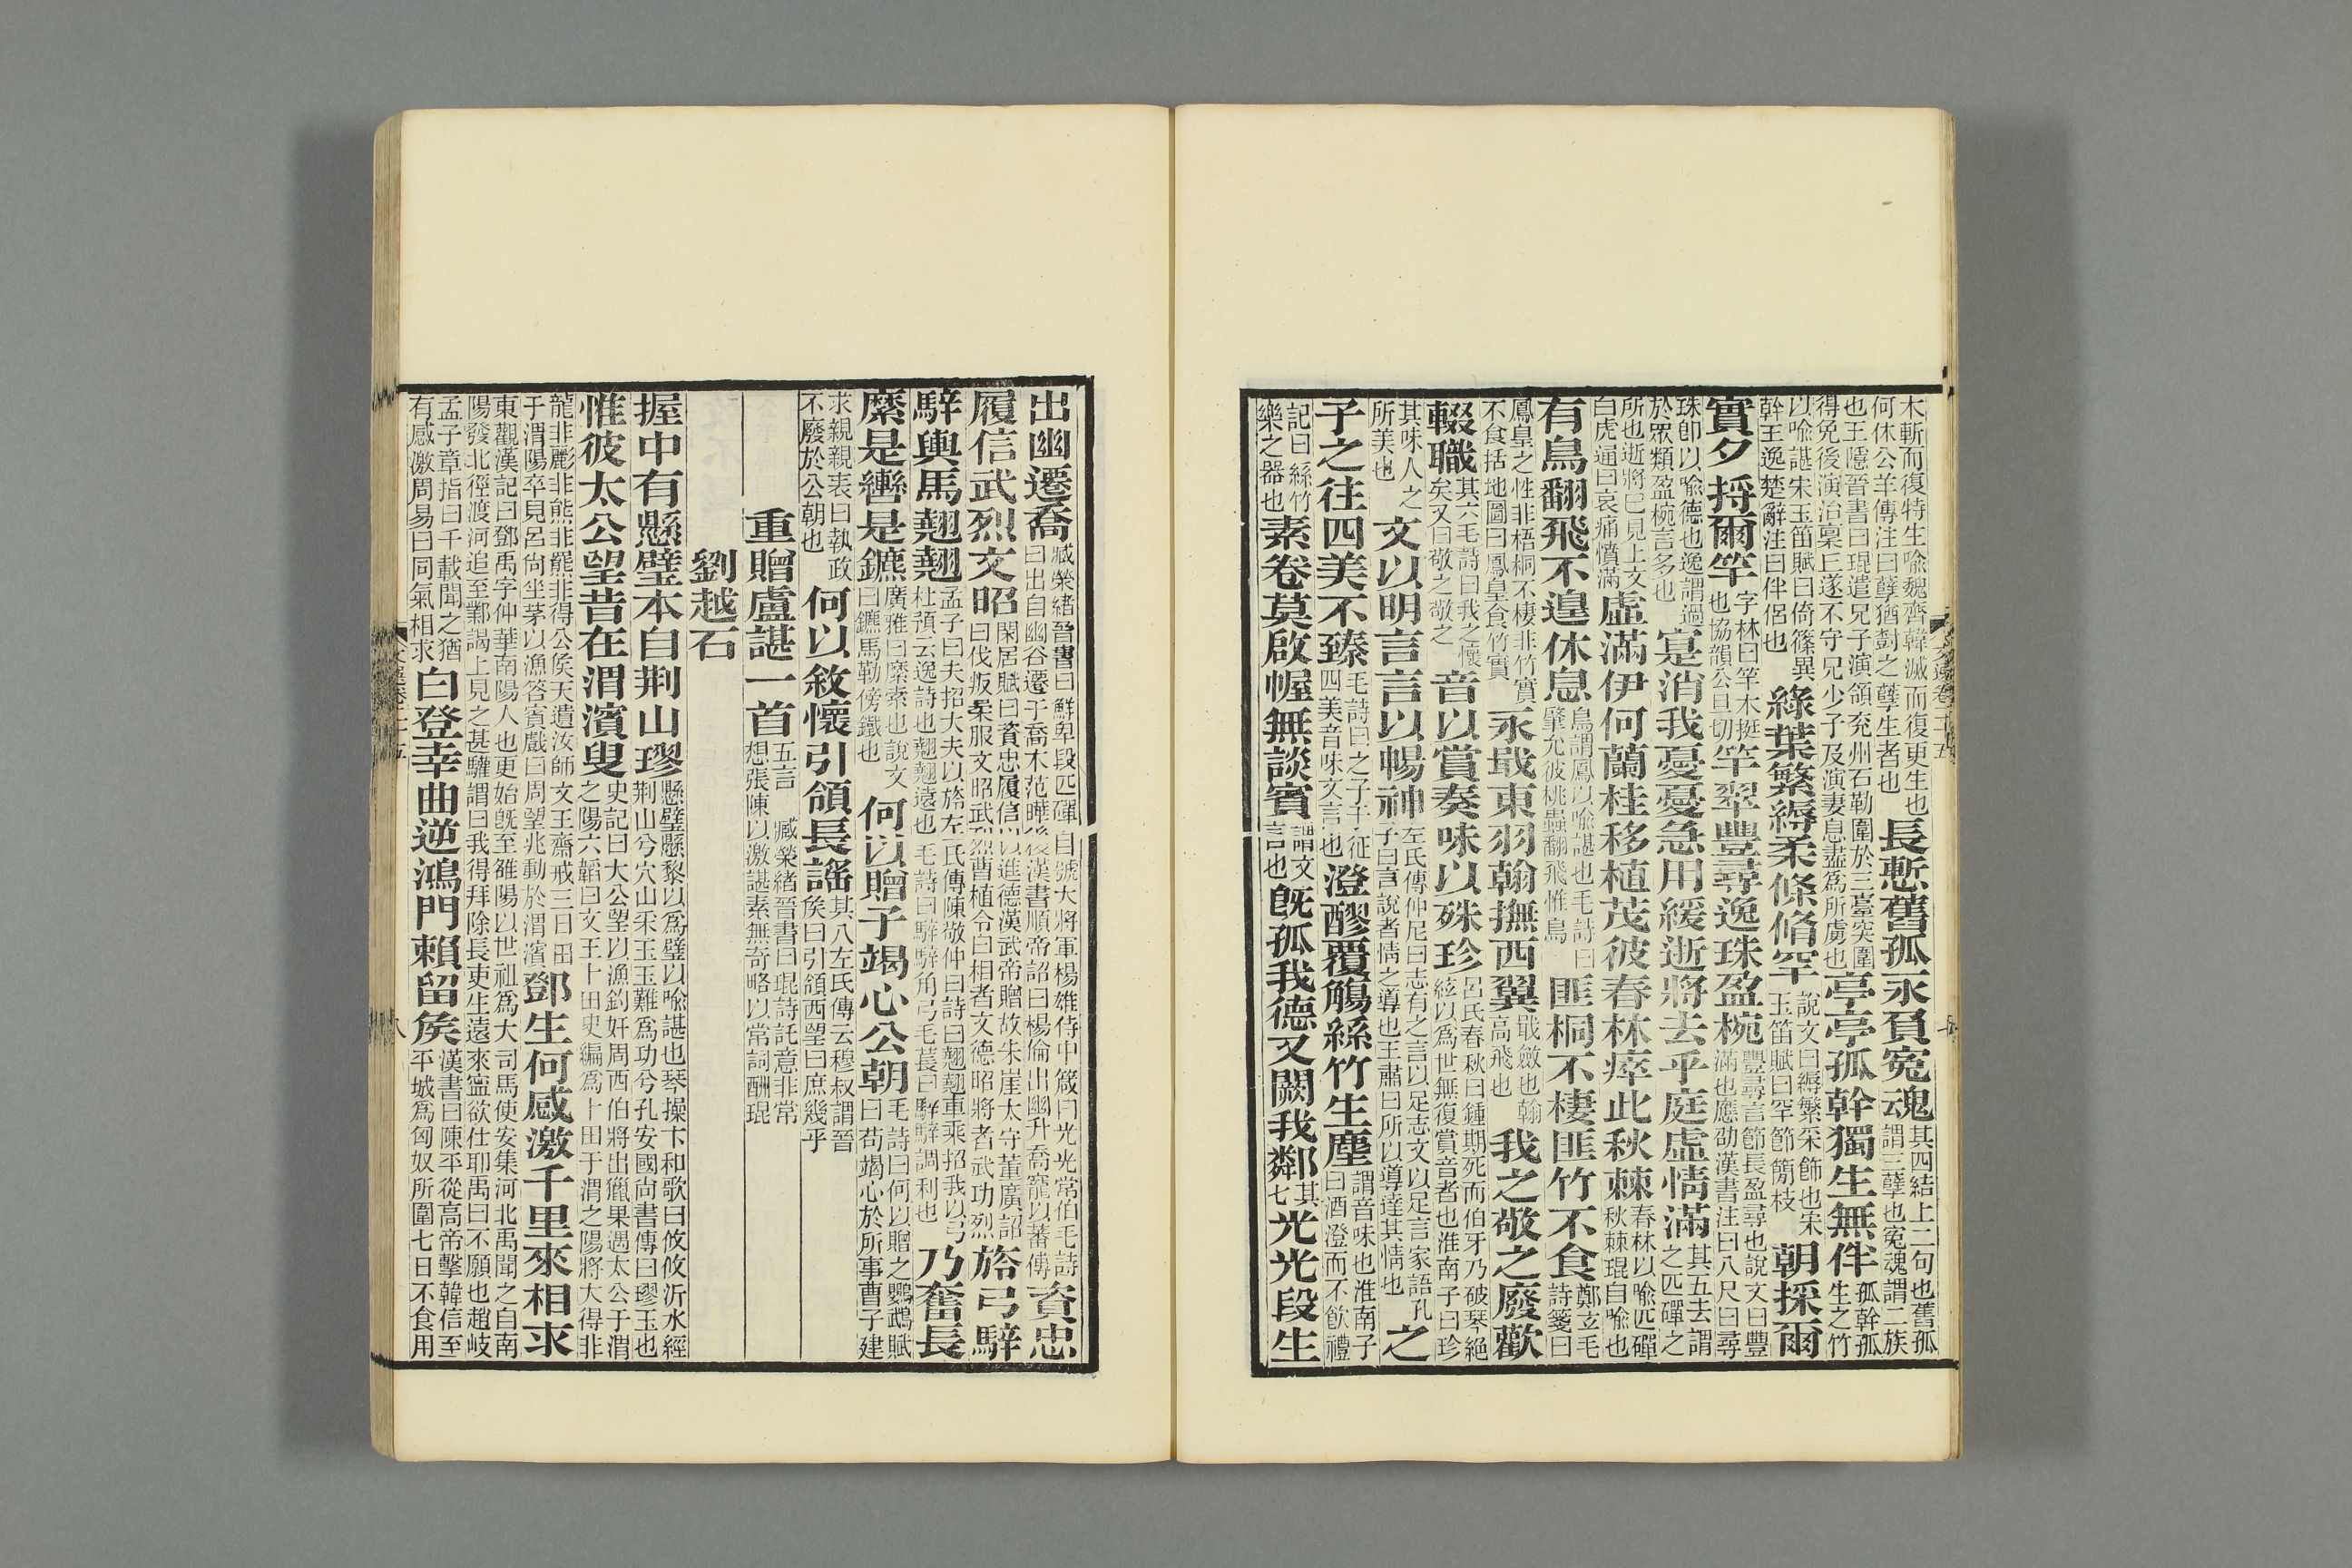 木斬而復特生喻魏齊韓滅而復更生也何休公羊傳注曰孽猶之孽生者也長慙舊孤永負寃魂其四結上二句也舊孤謂三孽也寃魂謂二族
也王隱晉書曰琨遣兄子演領兖州石勒圍於三臺突圍得免後演治稟丘遂不守兄少子及演妻息盡爲所虜也亭亭孤幹獨生無伴孤幹孤生之竹
以喻諶宋玉笛賦曰倚篠異幹王逸楚辭注曰伴侶也綠葉繁縟柔條脩罕說文曰縟繁采飾也宋玉笛賦曰罕節簡枝朝採爾
實夕捋爾竿字林曰竿木挺也協韻公旦切竿翠豐尋逸珠盈椀豐尋言節長盈尋也說文曰豐滿也應劭漢書注曰八尺曰尋
珠卽以喻德也逸謂過於眾類盈椀言多也寔消我憂憂急用緩逝將去乎庭虛情滿其五去謂之匹磾之
所也逝將已見上文白虎通曰哀痛憤滿虛滿伊何蘭桂移植茂彼春林瘁此秋棘春林以喻匹磾秋棘琨自喻也
有鳥翻飛不遑休息鳥謂鳳以喻諶也毛詩曰肇允彼桃蟲翻飛惟鳥匪桐不棲匪竹不食鄭玄毛詩箋曰
鳳皇之性非梧桐不棲非竹實不食括地圖曰鳳皇食竹實永戢東羽翰撫西翼戢斂也翰高飛也我之敬之廢歡
輟職其六毛詩曰我之懷矣又曰敬之敬之音以賞奏味以殊珍呂氏春秋曰鍾期死而伯牙乃破琴絕絃以爲世無復賞音者也淮南子曰珍
其味人之所美也文以明言言以暢神左氏傳仲尼曰志有之言以足志文以足言家語孔子曰言說者情之導也王肅曰所以導達其情也之
子之往四美不臻毛詩曰之子于征四美音味文言也澄醪覆觴絲竹生塵謂音味也淮南子曰酒澄而不飮禮
記曰絲竹樂之器也素卷莫啟幄無談賓謂文言也旣孤我德又闕我鄰其七光光段生
出幽遷喬臧榮緒晉書曰鮮卑段匹磾自號大將軍楊雄侍中箴曰光光常伯毛詩曰出自幽谷遷于喬木范曄後漢書順帝詔曰楊倫出幽升喬寵以蕃傅資忠
履信武烈文昭閑居賦曰資忠履信以進德漢武帝贈故朱崖太守董廣詔曰伐叛柔服文昭武烈曹植令曰相者文德昭將者武功烈旍弓騂
騂輿馬翹翹孟子曰夫招大夫以旍左氏傳陳敬仲曰詩曰翹翹車乘招我以弓杜預云逸詩也翹翹遠也毛詩曰騂騂角弓毛萇曰騂騂調利也乃奮長
縻是轡是鑣廣雅曰縻索也說文曰鑣馬勒傍鐵也何以贈子竭心公朝毛詩曰何以贈之鸚鵡賦曰苟竭心於所事曹子建
求親親表曰執政不廢於公朝也何以敘懷引領長謠其八左氏傳云穆叔謂晉矦曰引領西望曰庶幾乎
重贈盧諶一首五言臧榮緒晉書曰琨詩託意非常想張陳以激諶素無奇略以常詞酬琨
劉越石
握中有懸璧本自荆山璆懸璧懸黎以爲璧以喻諶也琴操卞和歌曰攸攸沂水經荆山兮穴山采玉玉難爲功兮孔安國尙書傳曰璆玉也
惟彼太公望昔在渭濱叟史記曰太公望以漁釣奸周西伯將出獵果遇太公于渭之陽六韜曰文王卜田史編爲卜田于渭之陽將大得非
龍非彨非熊非羆非得公矦天遺汝師文王齋戒三日田于渭陽卒見呂尙坐茅以漁答賓戲曰周望兆動於渭濱鄧生何感激千里來相求
東觀漢記曰鄧禹字仲華南陽人也更始旣至雒陽以世祖爲大司馬使安集河北禹聞之自南陽發北徑渡河追至鄴謁上見之甚驩謂曰我得拜除長吏生遠來寍欲仕耶禹曰不願也趙岐
孟子章指曰千載聞之猶有感激周易曰同氣相求白登幸曲逆鴻門賴留矦漢書曰陳平從高帝擊韓信至平城爲匈奴所圍七日不食用